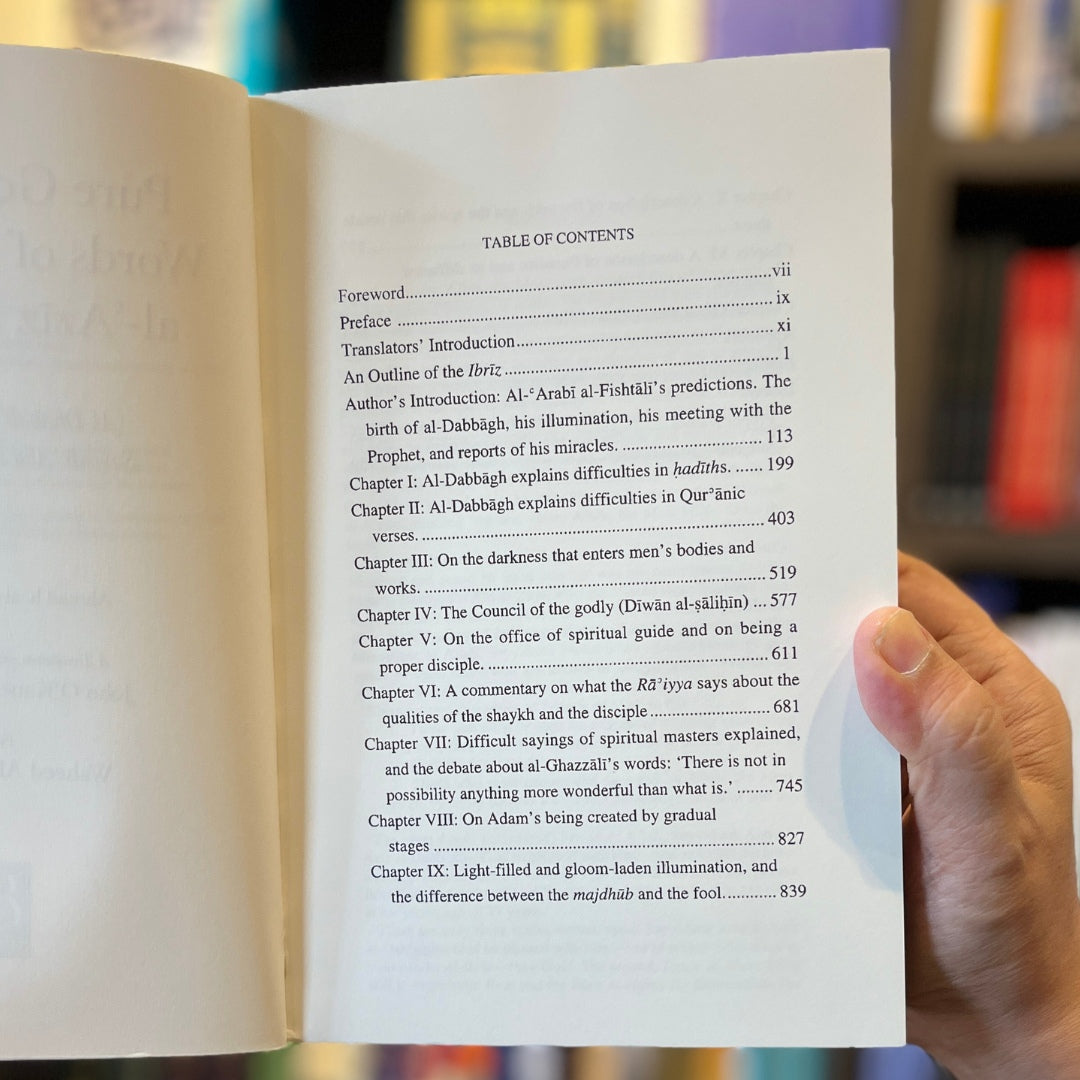 TABLE OF CONTENTS
Foreword..........................................................................................vii
Preface .......................................................................................... ix
Translators' Introduction................................................................ xi
An Outline of the Ibrīz .................................................................. 1
Author's Introduction: Al-ʿArabī al-Fishtālī's predictions. The
birth of al-Dabbāgh, his illumination, his meeting with the
Prophet, and reports of his miracles. ................................ 113
Chapter I: Al-Dabbāgh explains difficulties in ḥadīths. ...... 199
Chapter II: Al-Dabbāgh explains difficulties in Qurʾānic
verses. ................................................................................ 403
Chapter III: On the darkness that enters men's bodies and
works. ................................................................................ 519
Chapter IV: The Council of the godly (Dīwān al-ṣāliḥīn) ... 577
Chapter V: On the office of spiritual guide and on being a
proper disciple. .................................................................. 611
Chapter VI: A commentary on what the Rāʾiyya says about the
qualities of the shaykh and the disciple ............................ 681
Chapter VII: Difficult sayings of spiritual masters explained,
and the debate about al-Ghazzālī's words: 'There is not in
possibility anything more wonderful than what is.' ........ 745
Chapter VIII: On Adam's being created by gradual
stages ................................................................................ 827
Chapter IX: Light-filled and gloom-laden illumination, and
the difference between the majdhūb and the fool............ 839